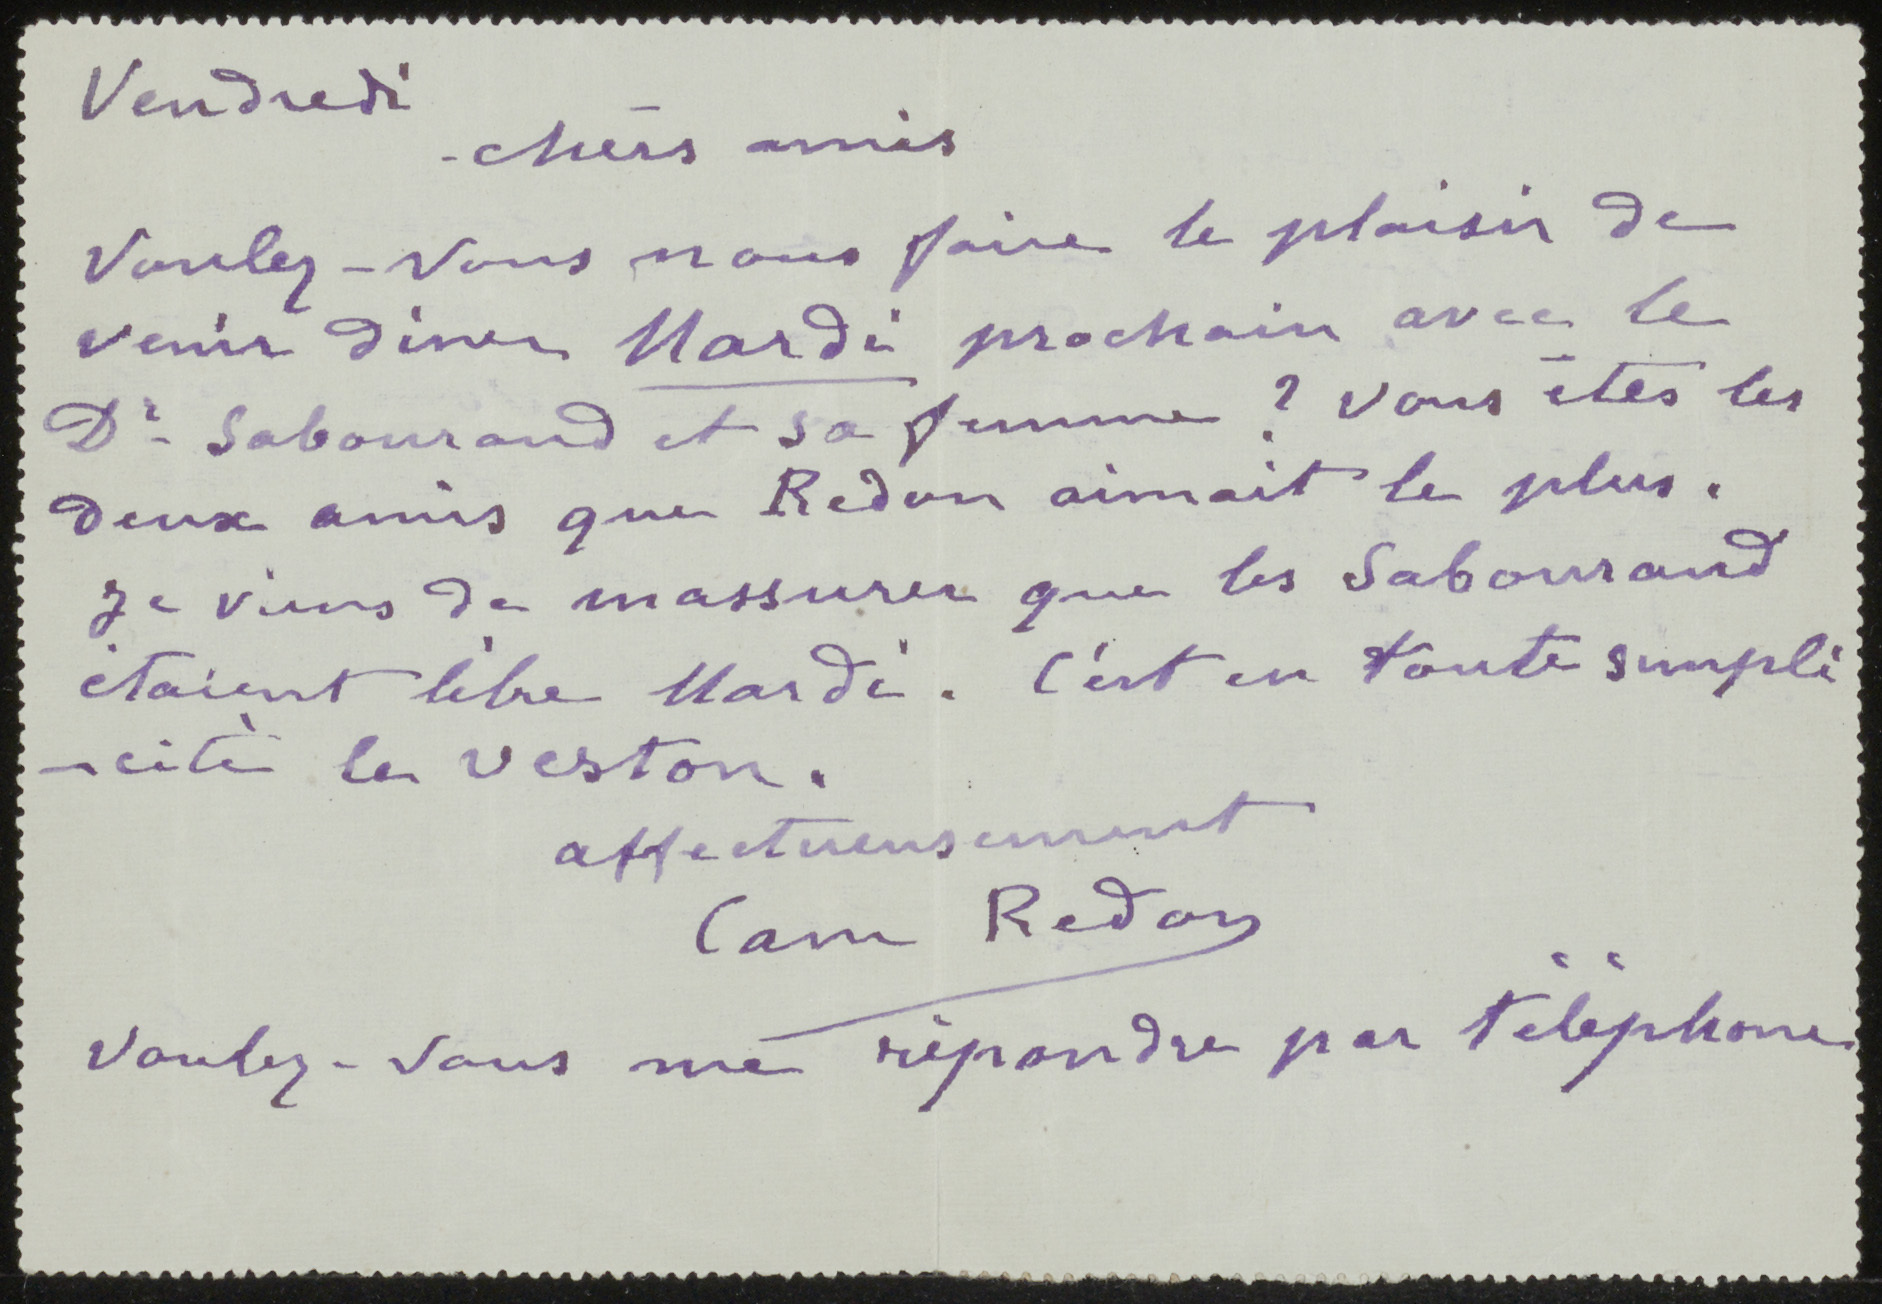 Vendredi
-chers amis
Voulez-vous nous faire le plaisir de
venir diner Mardi prochain avec le
Dr. Sabouraud et sa femme ? vous êtes les
deux amis que Redon aimait le plus.
Je viens de massurer que les Sabouraud
étaient libre Mardi. C'est en toute simpli
-cité le veston.
affectueusement
Cam Redon
Voulez-vous me répondre par téléphone.